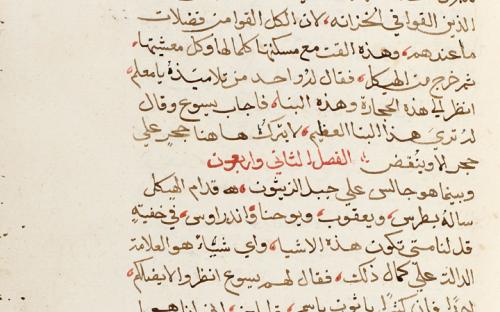 الذين القوا في الخزانه، لان الكل القوا من فضلات
ما عندهم، وهذه القت مع مسكنتها كلما لها وكل معيشتها،
ثم خرج من الهيكل، فقال له واحد من تلاميذه يا معلم،
انظر الي هذه الحجارة وهذه البنا، فاجاب يسوع وقال
له تري هذا البنا العظيم، لا يترك هاهنا حجر علي
حجر الا وينقض الفصل الثاني واربعون
وبينما هو جالس علي جبل الزيتون قدام الهيكل
ساله بطرس، ويعقوب، ويوحنا واندراوس، في خفيته
قل لنا متي تكون هذه الاشيا، واي شيً هو العلامة
الدالة علي كمال ذلك، فقال لهم يسوع انظروا لا يضلكم